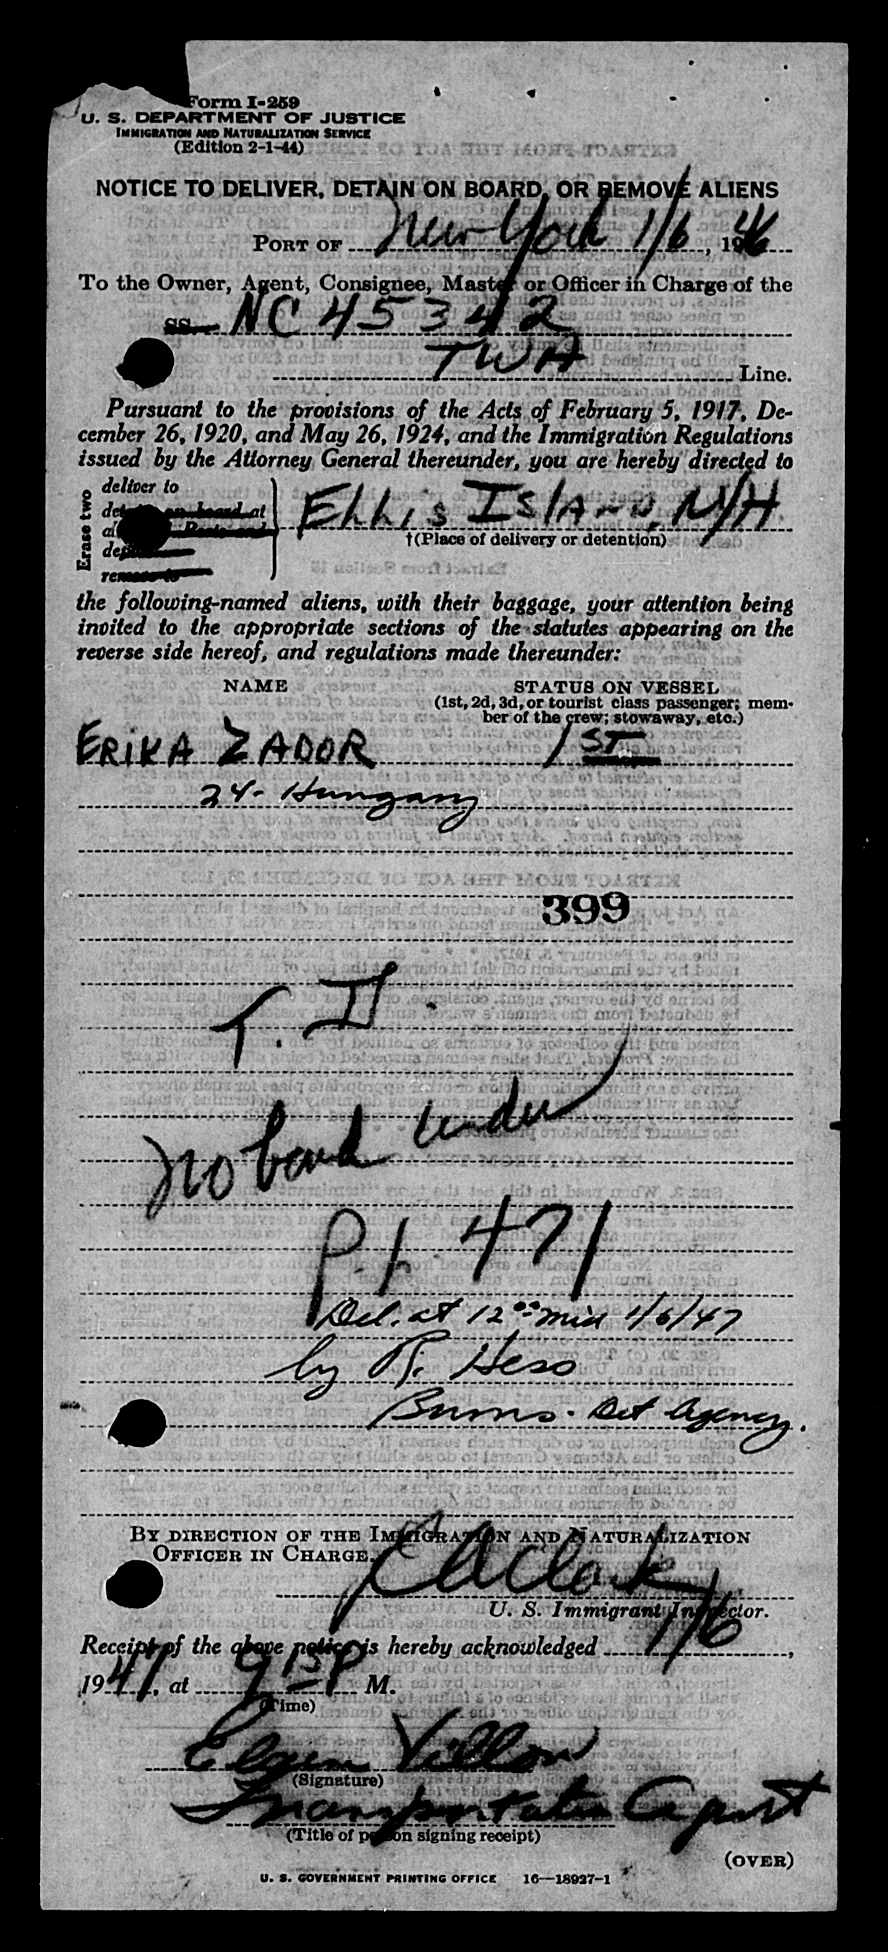 Form I-259
U. S. DEPARTMENT OF JUSTICE
IMMIGRATION AND NATURALIZATION SERVICE
(Edition 2-1-44)
NOTICE TO DELIVER, DETAIN ON BOARD, OR REMOVE ALIENS
PORT OF New York 1/6, 1946
To the Owner, Agent, Consignee, Master or Officer in Charge of the
SS. NC 45342
TWA Line.
Pursuant to the provisions of the Acts of February 5, 1917, De-
cember 26, 1920, and May 26, 1924, and the Immigration Regulations
issued by the Attorney General thereunder, you are hereby directed to
Erase two
deliver to
detain on board at
remove to
ELLIS ISLAND, N/H
†(Place of delivery or detention)
the following-named aliens, with their baggage, your attention being
invited to the appropriate sections of the statutes appearing on the
reverse side hereof, and regulations made thereunder:
NAME STATUS ON VESSEL
(1st, 2d, 3d, or tourist class passenger; mem-
ber of the crew; stowaway, etc.)
ERIKA ZADOR 1ST
24- Hungary
399
T. D.
No bond under
P.L. 471
Del. at 12:00 mid 1/6/47
by R. Hess
Burns. Det Agency.
BY DIRECTION OF THE IMMIGRATION AND NATURALIZATION
OFFICER IN CHARGE.
Clark
U. S. Immigrant Inspector.
Receipt of the above notice is hereby acknowledged 1/6,
1947, at 9 15 P M.
(Time)
(Signature)
Transportation Agent
(Title of person signing receipt)
(OVER)
U. S. GOVERNMENT PRINTING OFFICE 16—18927-1